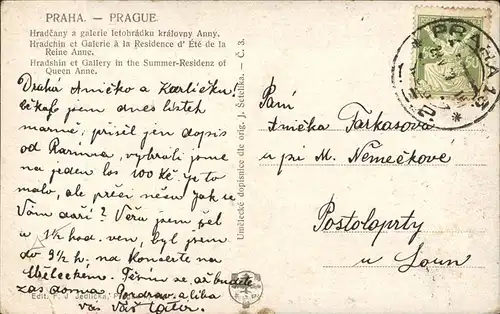 PRAHA. — PRAGUE.
Hradčany a galerie letohrádku královny Anny.
Hradchin et Galerie à la Residence d' Été de la
Reine Anne.
Hradshin et Gallery in the Summer-Residenz of
Queen Anne.
Drahá Aničko a Karlíčku!
čekal jsem dnes lístek
marně, přišel jen dopis
od Pařína, vybráli jsme
na jeden los 100 Kč. Je to
málo, ale přeci něco. Jak se
Vám daří? Včera jsem šel
v 1/2 hod. ven, byl jsem
do 9 1/2 h. na koncertě na
s. Těším se až budete
zas doma. Pozdrav a líbá
vás Váš tatín.
Edit. F. J. Jedlička, P
Umělecké dopisnice dle orig. J. Šetelíka. — Č. 3.
PRAHA
Paní
Anička Farkasová
u pí M. Němečkové
Postoloprty
u Loun